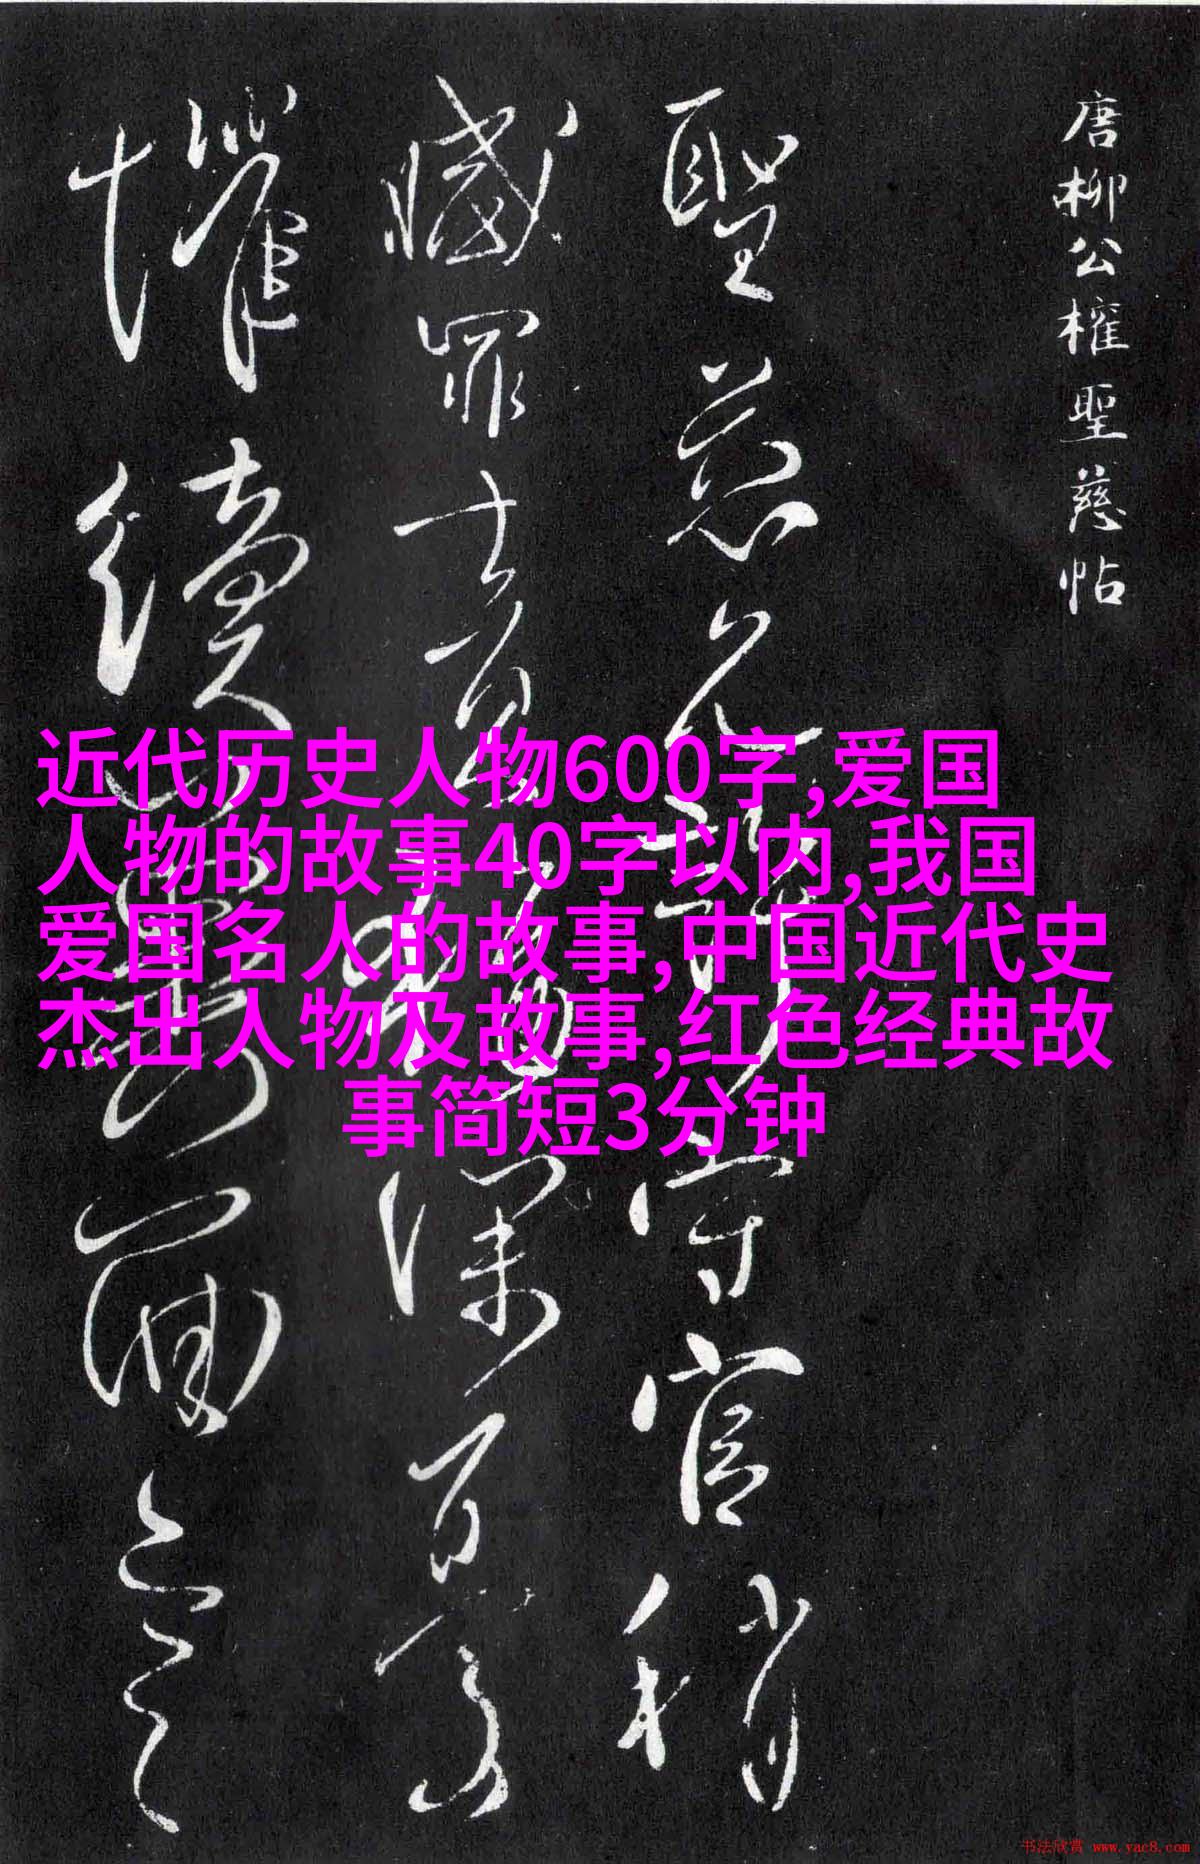 唐柳公權聖慈帖
聖慈允許守官稍
減罪責猶深
懼續
近代历史人物600字,爱国
人物的故事40字以内,我国
爱国名人的故事,中国近代史
杰出人物及故事,红色经典故
事简短3分钟
书法欣赏 www.yac8.com